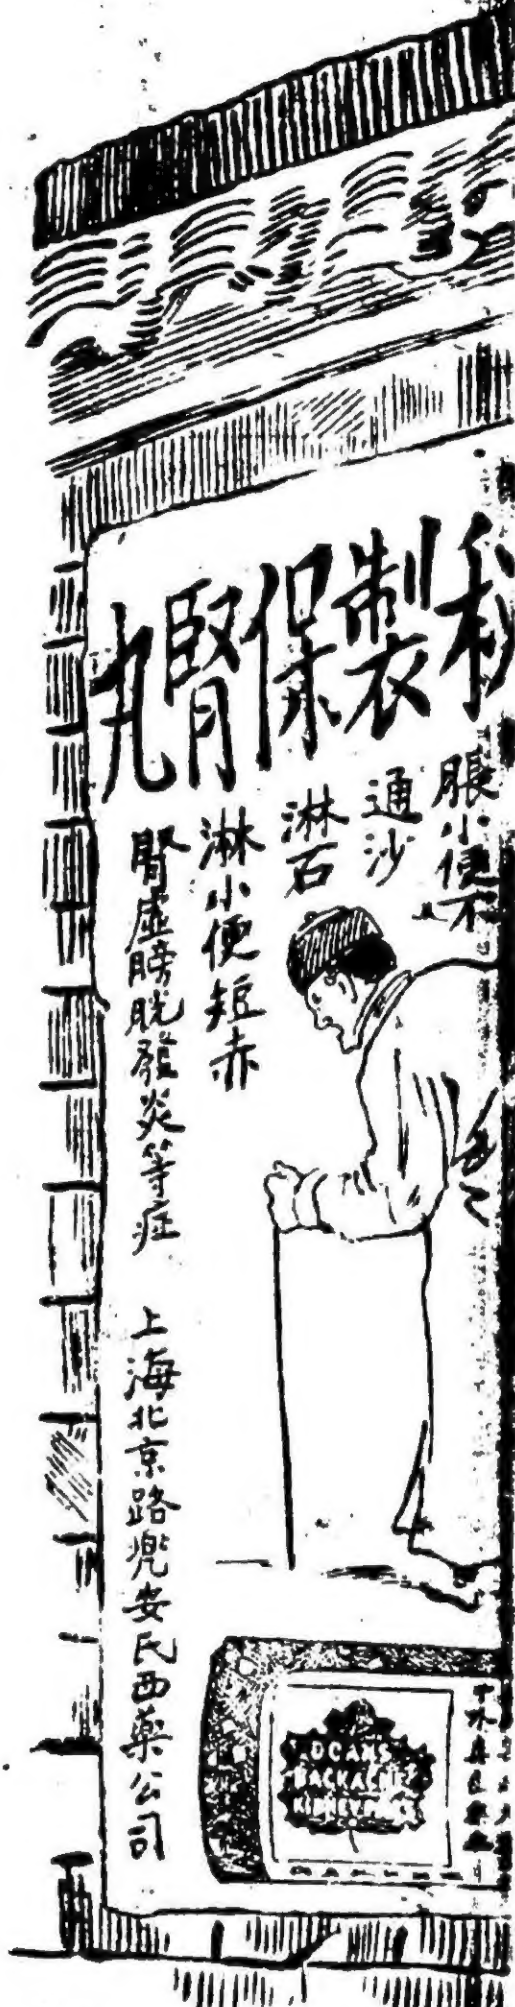 製保腎丸
脹小便不
通沙
淋石
淋小便短赤
腎虛膀胱發炎等症
上海北京路兜安氏西藥公司
DOANS
BACKACHE
KIDNEY PILLS